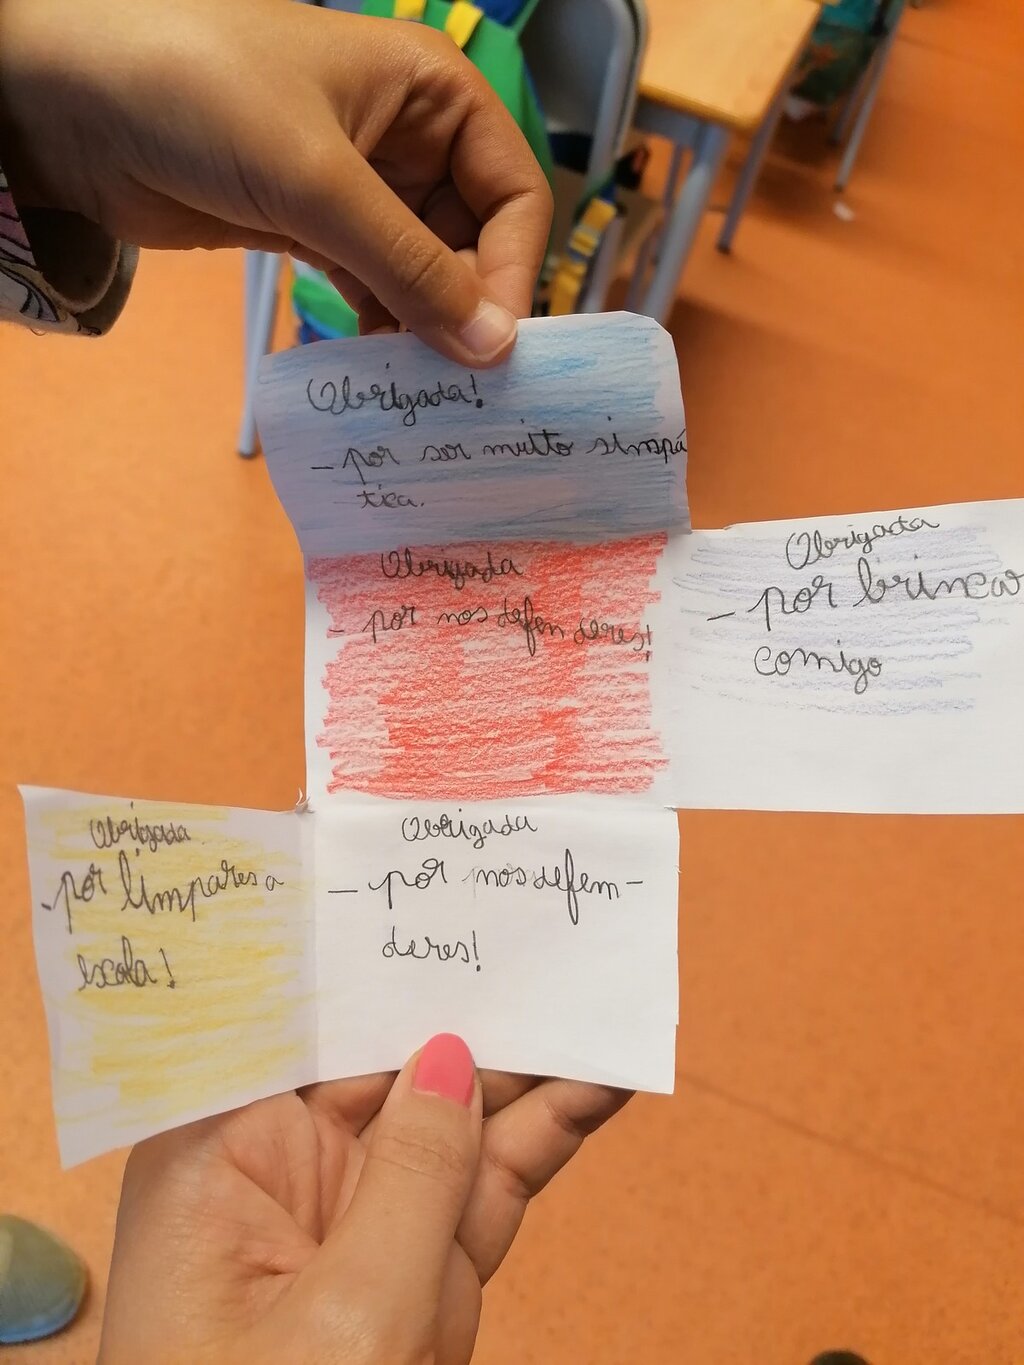 Obrigada!
- por ser muito simpá
tica.
Obrigada
- por nos defen deres!
Obrigada
- por brincar
comigo
Obrigada
- por limpares a
escola!
Obrigada
- por nos defem-
deres!